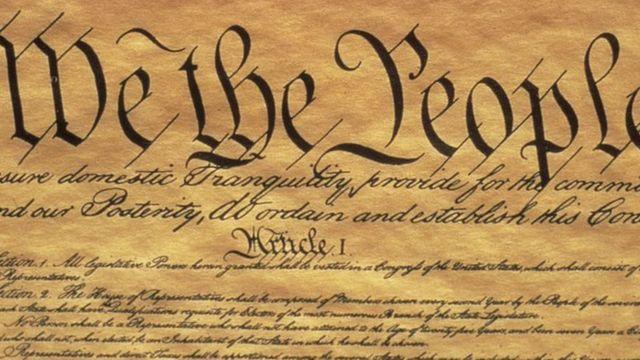 We the People
sure domestic Tranquility, provide for the comm
nd our Posterity, do ordain and establish this Con
Article. I.
ction. 1. All legislative Powers herein granted shall be vested in a Congress of the United States, which shall consist of
Representatives.
ction. 2. The House of Representatives shall be composed of Members chosen every second Year by the People of the
ach State shall have Qualifications requisite for Electors of the most numerous Branch of the State Legislature.
No Person shall be a Representative who shall not have attained to the Age of twenty five Years, and been seven Years a
and who shall not, when elected, be an Inhabitant of that State in which he shall be chosen.
Representatives and direct Taxes shall be apportioned among the several States